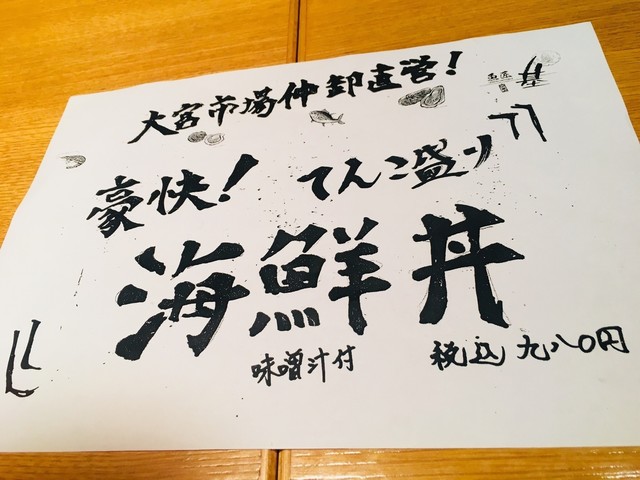 大宮市場仲卸直営！
『豪快！てんこ盛り
海鮮丼』
味噌汁付 税込九八〇円